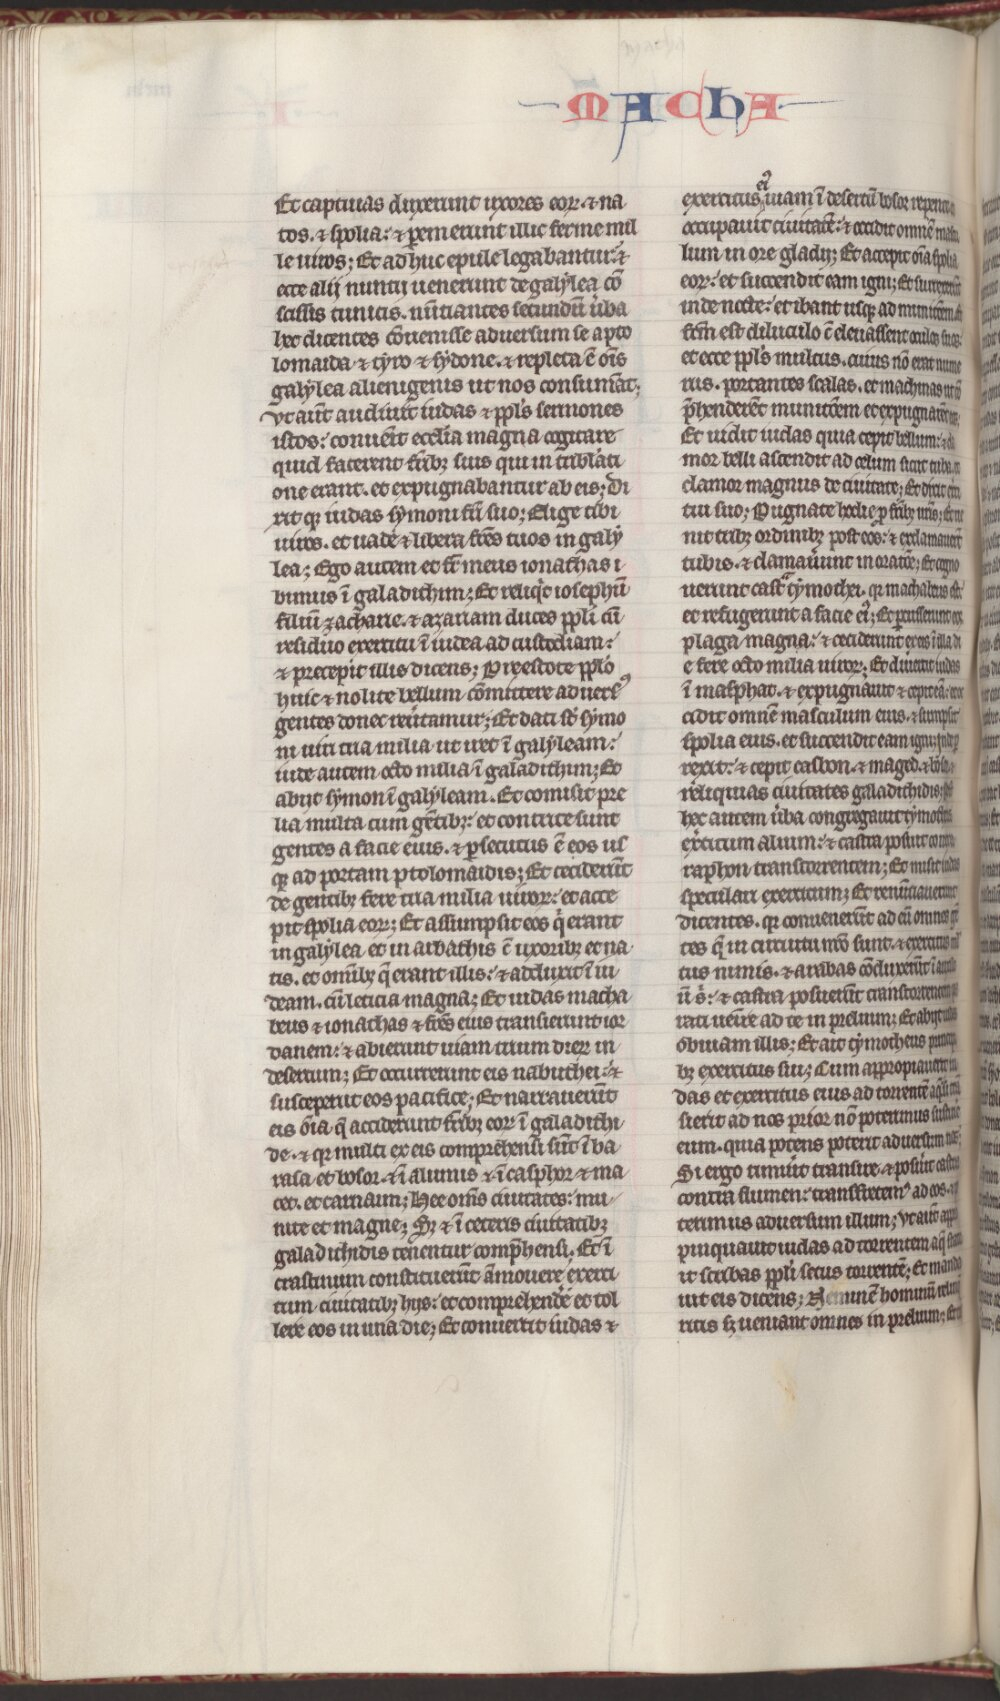 macha
MACHA
Et captiuas duxerunt uxores eoꝝ ⁊ na
tos. ⁊ spolia: ⁊ ꝑemerunt illuc ferme mil
le uiros; Et adhuc epule legabantur: ⁊
ecce alij nuntij uenerunt de galylea cō
scissis tunicis. nūtiantes secundū ūba
hec dicentes cōuenisse aduersum se a ptо
lomaida ⁊ tyro ⁊ sydone. ⁊ repleta ē oīs
galylea alienigenis ut nos consumāt;
Vt aūt audiuit iudas ⁊ ppls sermones
istos: conuēit eccl̄ia magna cogitare
quid facerent frībꝫ suis qui in tribulati
one erant. et expugnabantur ab eis; Di
xit qꝫ iudas symoni frī suo; Elige tibi
uiros. et uade ⁊ libera frēs tuos in galy
lea; Ego autem et fr̄ meus ionathas i
bimus ī galadithim; Et reliqit iosephū
filiū zacharie. ⁊ azariam duces ppli cū
residuo exercitu ī iudea ad custodiam:
⁊ precepit illis dicens; Preestote pplo
huic ⁊ nolite bellum cōmittere aduersꝰ
gentes donec reūtamur; Et dati st̄ symo
ni uiri tria milia ut iret ī galyleam:
iude autem octo milia ī galadithim; Et
abijt symon ī galyleam. Et comisit pre
lia multa cum gētibꝫ: et contrite sunt
gentes a facie eius. ⁊ ꝑsecutus ē eos us
qꝫ ad portam ptolomaidis; Et ceciderūt
de gentibꝫ fere tria milia uiroꝝ: et acce
pit spolia eoꝝ; Et assumpsit eos q̄ erant
in galylea et in arbathis ē uxoribꝫ et na
tis. et omībꝫ q̄ erant illis: ⁊ adduxit ī iu
deam. cū leticia magna; Et iudas macha
beus ⁊ ionathas ⁊ frēs eius transierunt ior
danem: ⁊ abierunt uiam trium dieꝝ in
desertum; Et occurrerunt eis nabuthei: ⁊
susceperūt eos pacifice; Et narrauerūt
eis ōia q̄ acciderunt frībꝫ eoꝝ ī galadithi
de. ⁊ qꝛ multi ex eis comprehensi sūt ī ba
rasa et bosor. ⁊ ī alumis ⁊ ī casphor ⁊ ma
cet. et carnaim; Hee omīs ciuitates: mu
nite et magne; Sꝫ ⁊ ī ceteris ciuitatibꝫ
galadithidis tenentur comp̄hensi. Et ī
crastinum constituerūt āmouere exerci
tum ciuitatibꝫ hijs: et comprehendē et tol
lere eos in una die; Et conuertit iudas ⁊
exercitus eiꝰ uiam ī desertū bosor repente
occupauit ciuitatē: ⁊ occidit omnē mascu
lum in ore gladij; Et accepit oīa spolia
eoꝝ: et succendit eam igni; Et surrexerūt
inde nocte: et ibant usqꝫ ad munitiōem
fc̄m est diluculo ē eleuassent oculos suos:
et ecce ppls multus. cuius nō erat nume
rus. portantes scalas. et machinas ut cō
p̄henderēt munitōem et expugnarēt eos;
Et uidit iudas quia cepit bellum: ⁊ cla
mor belli ascendit ad celum sicut tuba. ⁊
clamor magnus de ciuitate; Et dixit exꝛci
tui suo; Pugnate hodie ꝓ frībꝫ uris; Et ue
nit tribꝫ ordinibꝫ post eos: ⁊ exclamauerūt
tubis. ⁊ clamauūunt in oratōe; Et cogno
uerunt castra tymothei. qꝛ machabeus est:
et refugerunt a facie eiꝰ; Et ꝑcusserunt eos
plaga magna: ⁊ ceciderunt ex eis ī illa di
e fere octo milia uiroꝝ; Et diuertit iudas
ī masphat. ⁊ expugnauit ⁊ cepit eā: et oc
cidit omnē masculum eius. ⁊ sumpsit
spolia eius. et succendit eam igni; Inde ꝑ
rexit: ⁊ cepit casbon. ⁊ maged. ⁊ bosor. ⁊
reliquas ciuitates galadithidis; Post
hec autem ūba congregauit tymotheus
exercitum alium: ⁊ castra posuit contra
raphon trans torrentem; Et misit iudas
speculari exercitum; Et renūtiauerunt
dicentes. qꝛ conuenerūt ad eū omnes gē
tes q̄ in circuitu nr̄o sunt. ⁊ exercitus ml
tus nimis. ⁊ arabas cōduxerūt ī auxili
ū s̄: ⁊ castra posuerūt trans torrentem pa
rati uenire ad te in prelium; Et abijt iudas
obuiam illis; Et ait tymotheus principi
bꝫ exercitus sui; Cum appropiauerit iu
das et exercitus eius ad torrentē aque: si trā
sierit ad nos prior nō poterimus sustinē
eum. quia potens poterit aduersum nos;
Si ergo timuīt transire. ⁊ posuīt castra
contra flumen: transfretemꝰ ad eos. ⁊ po
terimus aduersum illum; Vt aūt appro
pinquauit iudas ad torrentem aq̄ statu
it scribas ppli secus torrentē; Et manda
uit eis dicens; Neminē hominū relin
ritis sꝫ ueniant omnes in prelium;